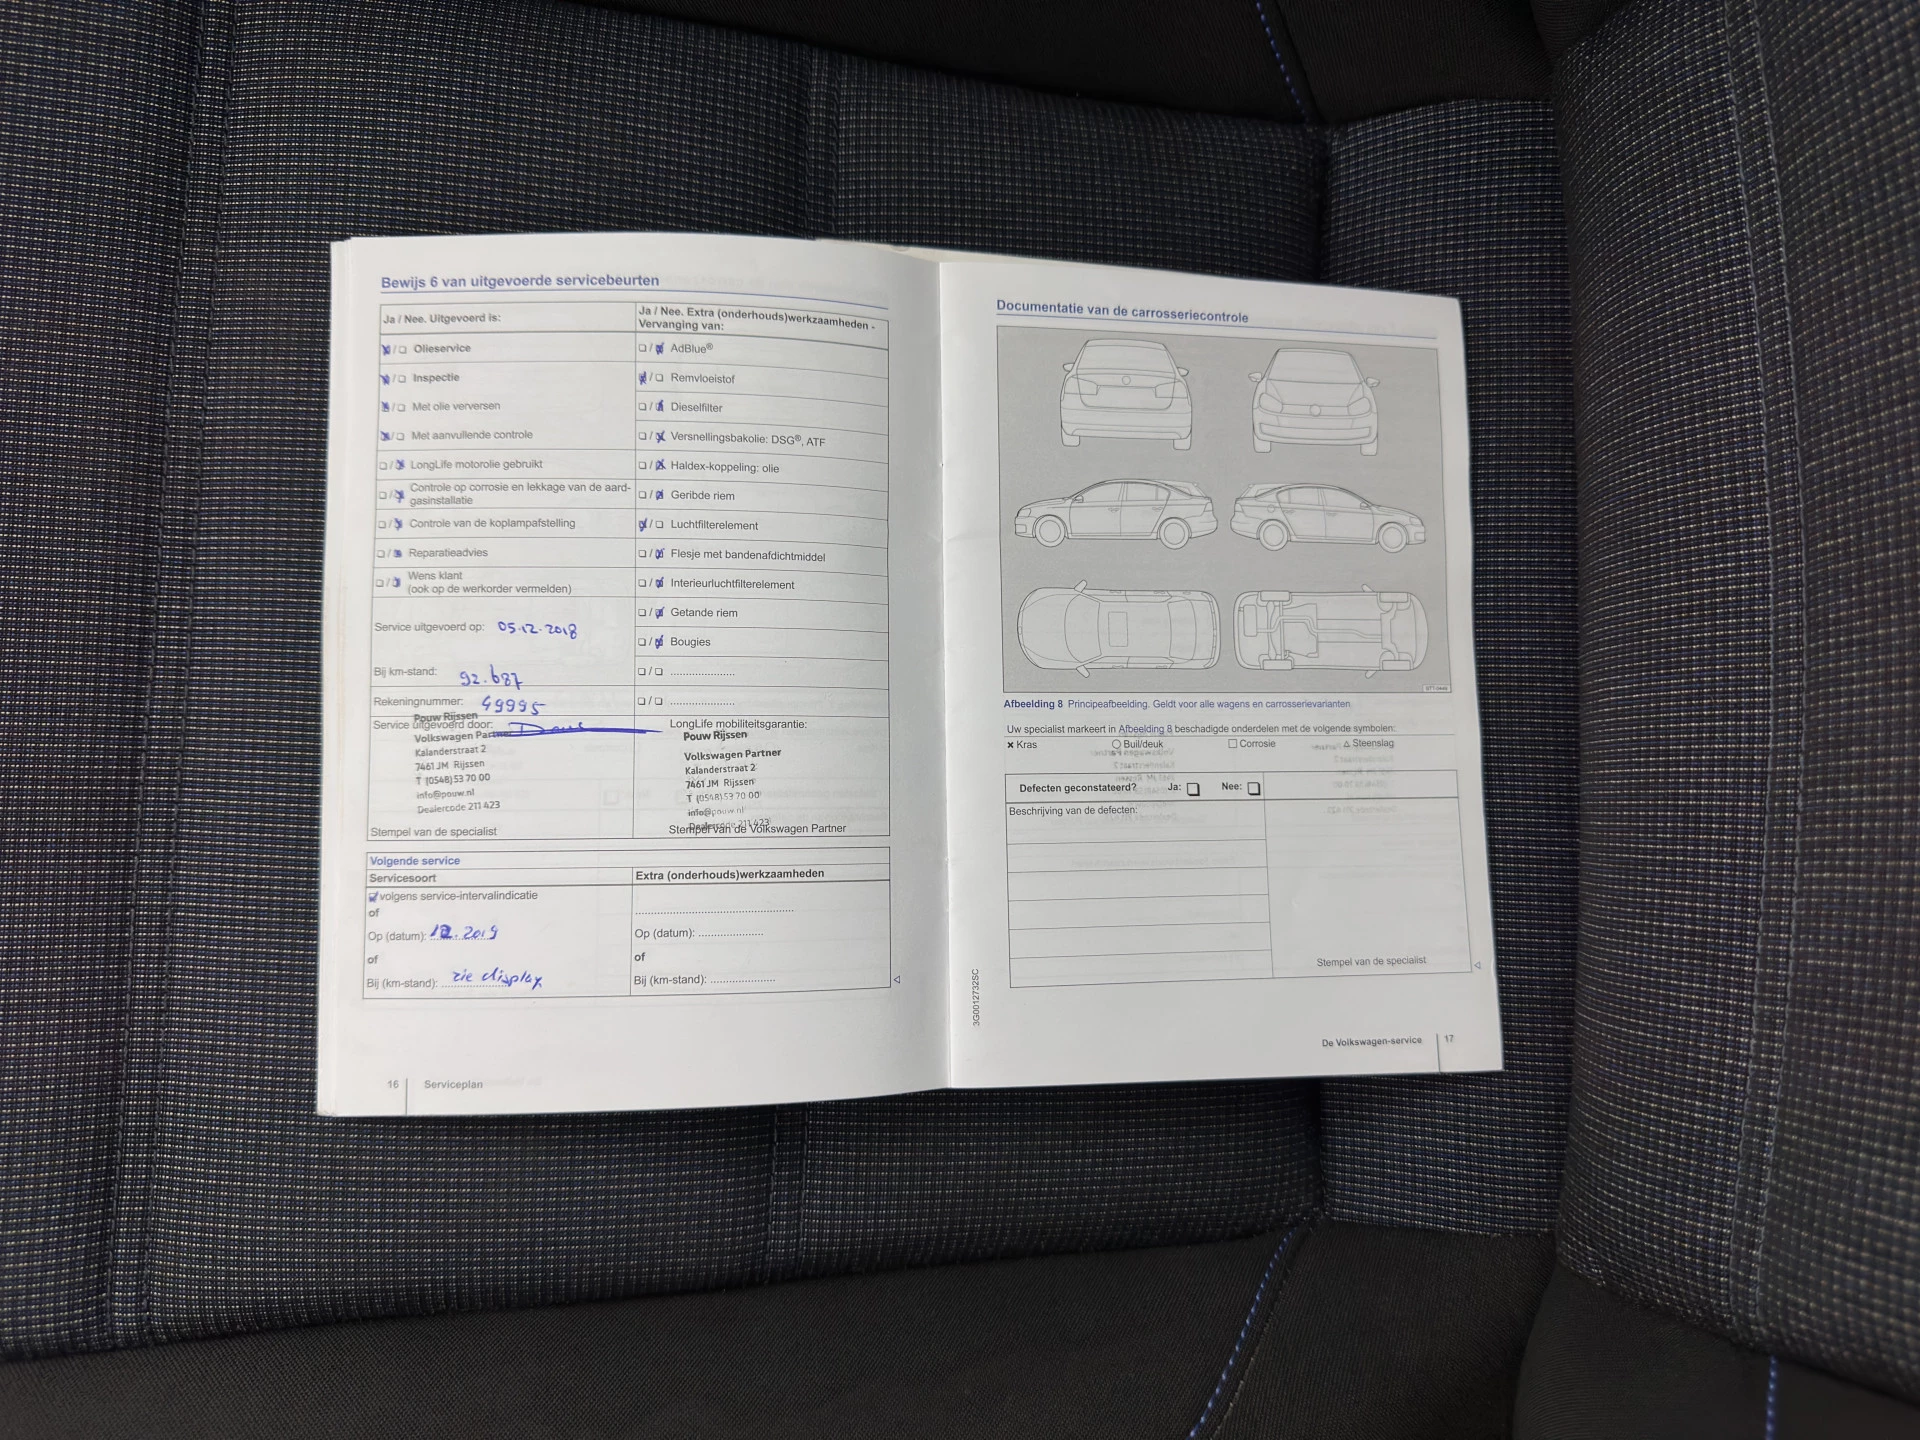 Bewijs 6 van uitgevoerde servicebeurten
Ja / Nee. Uitgevoerd is:
Olieservice
Inspectie
Met olie verversen
Met aanvullende controle
LongLife motorolie gebruikt
Controle op corrosie en lekkage van de aard-
gasinstallatie
Controle van de koplampafstelling
Reparatieadvies
Wens klant
(ook op de werkorder vermelden)
Service uitgevoerd op: 05.12.2018
Bij km-stand: 92.687
Rekeningnummer: 49995
Service uitgevoerd door:
Pouw Rijssen
Volkswagen Partner
Kalanderstraat 2
7461 JM Rijssen
T (0548) 53 70 00
info@pouw.nl
Dealercode 211 423
Stempel van de specialist
Ja / Nee. Extra (onderhouds)werkzaamheden -
Vervanging van:
AdBlue®
Remvloeistof
Dieselfilter
Versnellingsbakolie: DSG®, ATF
Haldex-koppeling: olie
Geribde riem
Luchtfilterelement
Flesje met bandenafdichtmiddel
Interieurluchtfilterelement
Getande riem
Bougies
/ ....................
/ ....................
LongLife mobiliteitsgarantie:
Pouw Rijssen
Volkswagen Partner
Kalanderstraat 2
7461 JM Rijssen
T (0548) 53 70 00
info@pouw.nl
Dealercode 211 423
Stempel van de Volkswagen Partner
Volgende service
Servicesoort
volgens service-intervalindicatie
of
Op (datum): 12.2019
of
Bij (km-stand): zie display
Extra (onderhouds)werkzaamheden
Op (datum): ....................
of
Bij (km-stand): ....................
16
Serviceplan
Documentatie van de carrosseriecontrole
Afbeelding 8 Principeafbeelding. Geldt voor alle wagens en carrosserievarianten
Uw specialist markeert in Afbeelding 8 beschadigde onderdelen met de volgende symbolen:
× Kras
○ Buil/deuk
□ Corrosie
△ Steenslag
Defecten geconstateerd? Ja: Nee:
Beschrijving van de defecten:
Stempel van de specialist
3G0012732SC
De Volkswagen-service
17